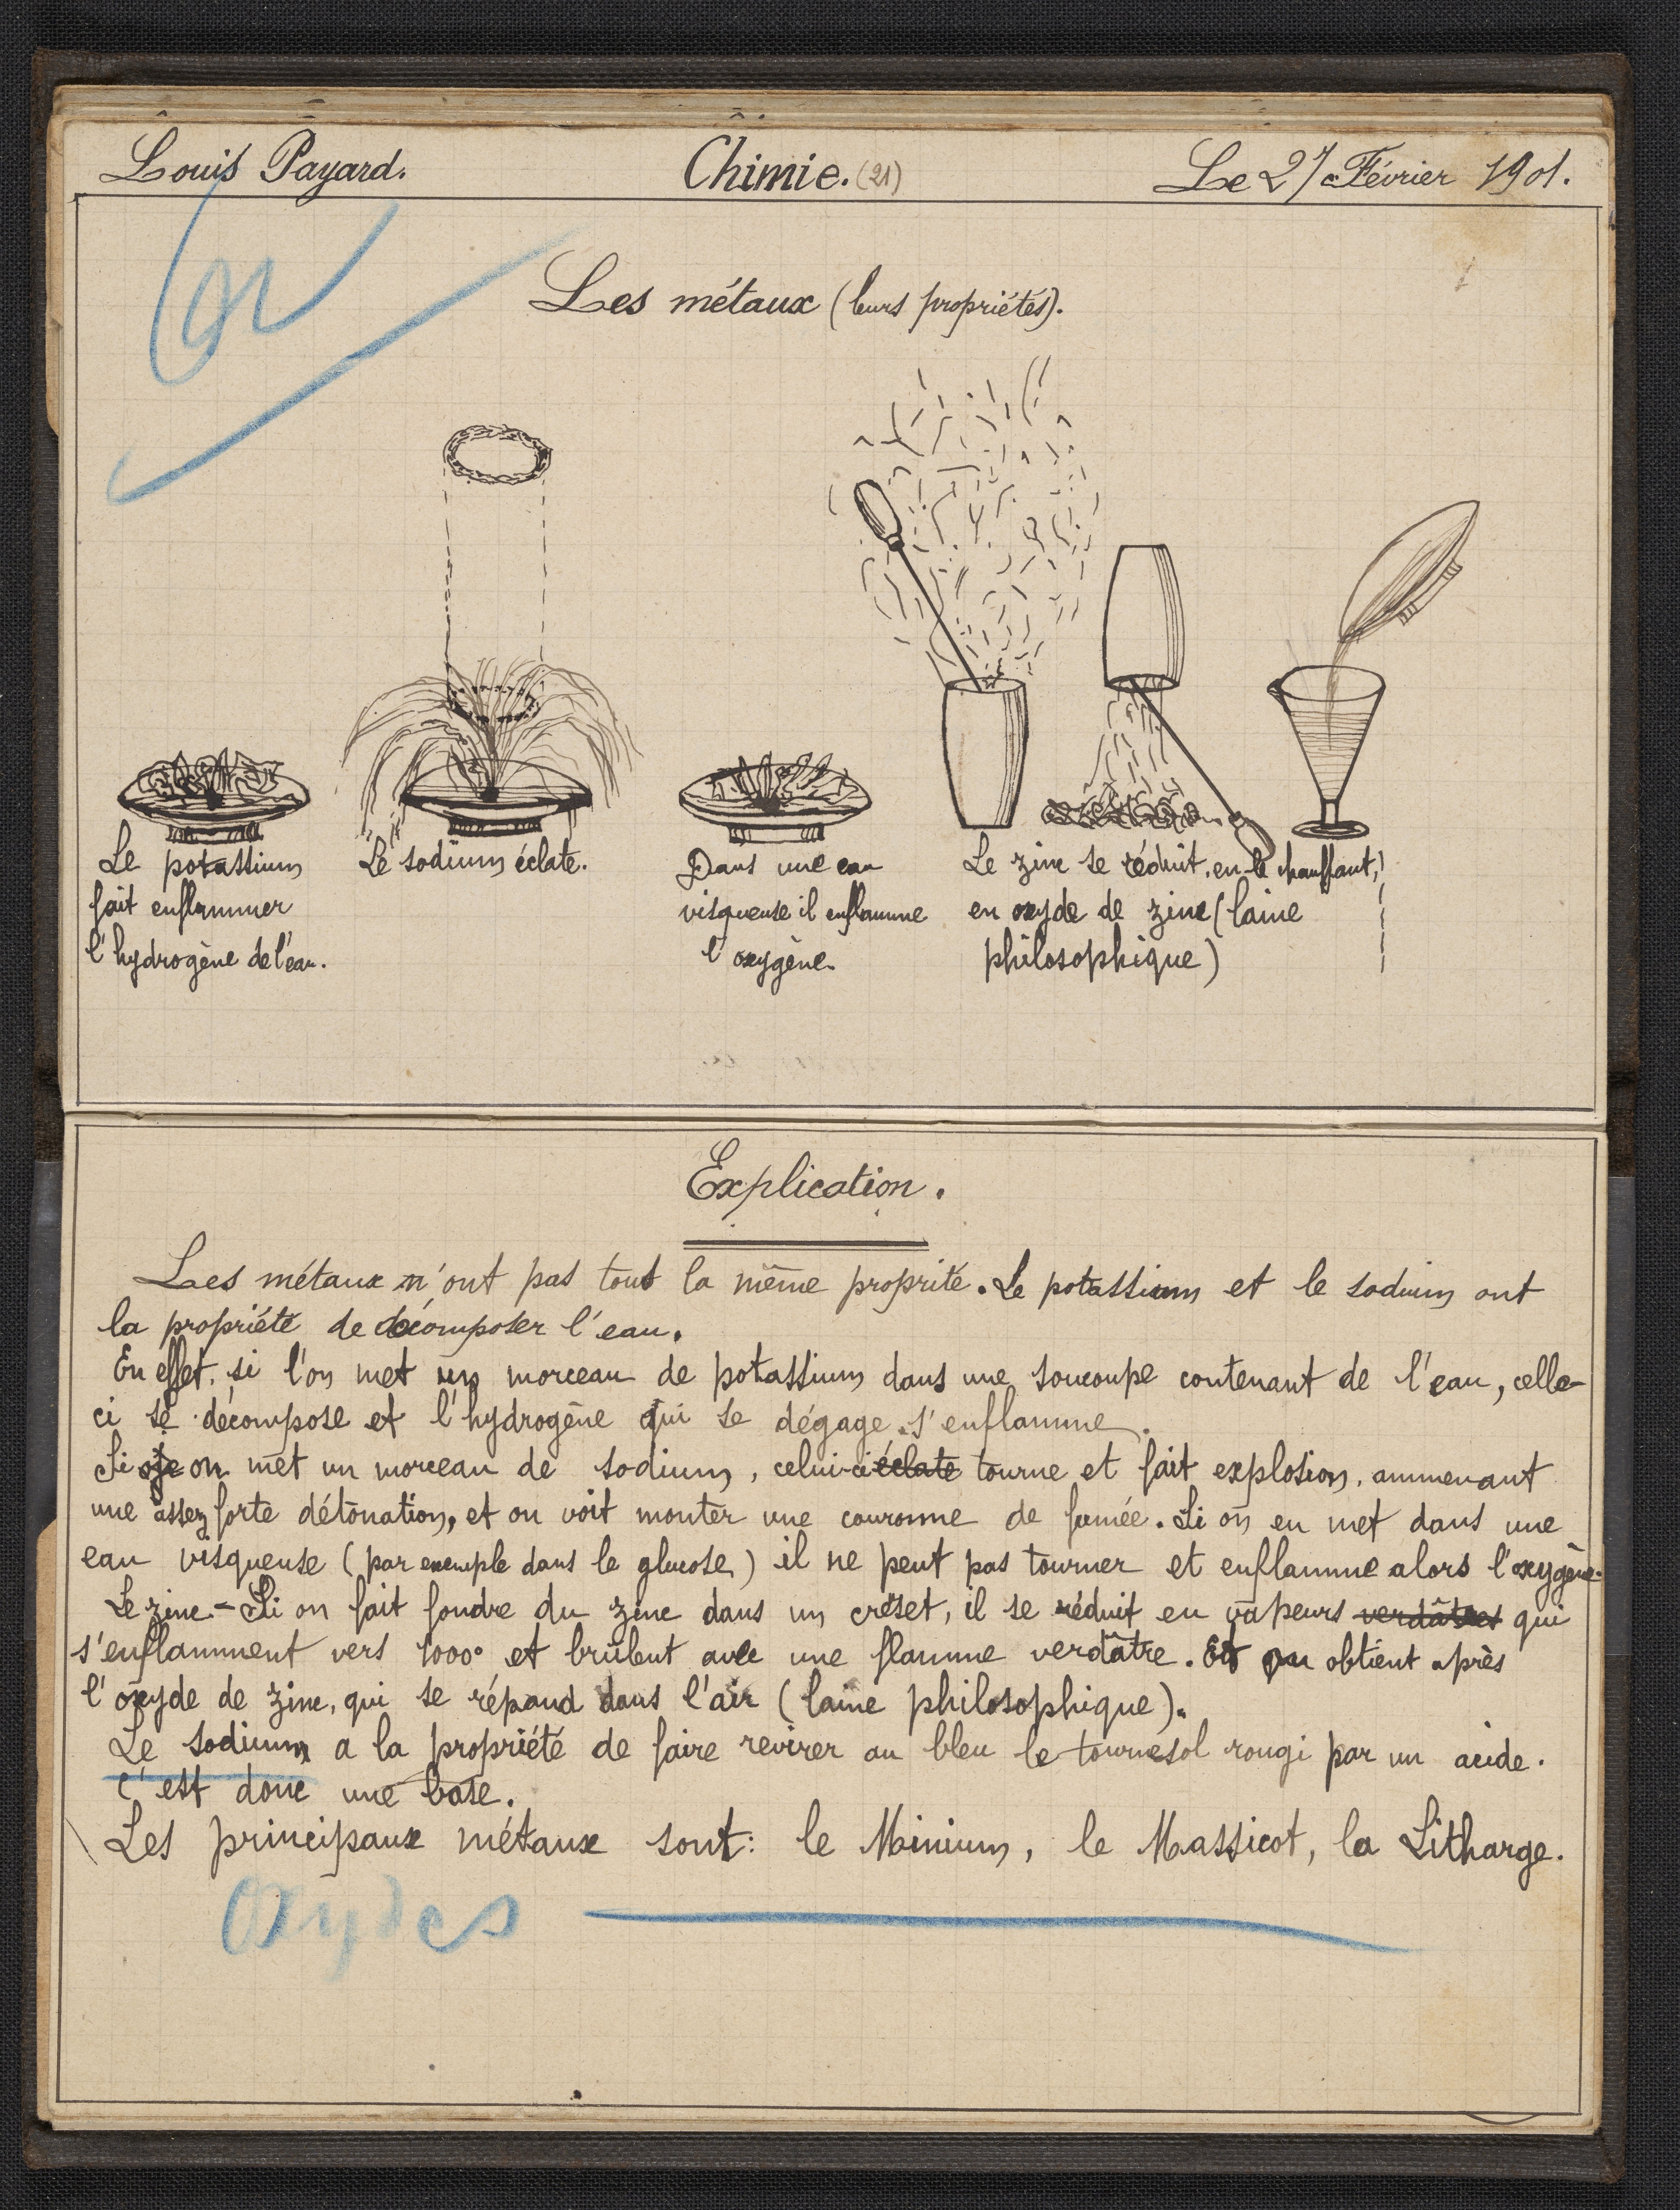 Louis Payard.
Chimie. (21)
Le 27 Février 1901.
Les métaux (leurs propriétés).
Le potassium
fait enflammer
l'hydrogène de l'eau.
Le sodium éclate.
Dans une eau
visqueuse il enflamme
l'oxygène.
Le zinc se réduit, en le chauffant,
en oxyde de zinc (laine
philosophique)
Explication.
Les métaux n'ont pas tout la même proprité. Le potassium et le sodium ont
la propriété de décomposer l'eau.
En effet, si l'on met un morceau de potassium dans une soucoupe contenant de l'eau, celle-
ci se décompose et l'hydrogène qui se dégage s'enflamme.
Si on met un morceau de sodium, celui-ci éclate tourne et fait explosion, ammenant
une assez forte détonation, et on voit monter une couronne de fumée. Si on en met dans une
eau visqueuse (par exemple dans le glucose) il ne peut pas tourner et enflamme alors l'oxygène.
Le zinc - Si on fait fondre du zinc dans un creset, il se réduit en vapeurs verdâtres qui
s'enflamment vers 1000° et brûlent avec une flamme verdâtre. Et on obtient après
l'oxyde de zinc, qui se répand dans l'air (laine philosophique).
Le sodium a la propriété de faire revirer au bleu le tournesol rougi par un acide.
C'est donc une base.
Les principaux métaux sont: le Minium, le Massicot, la Litharge.
Oxydes